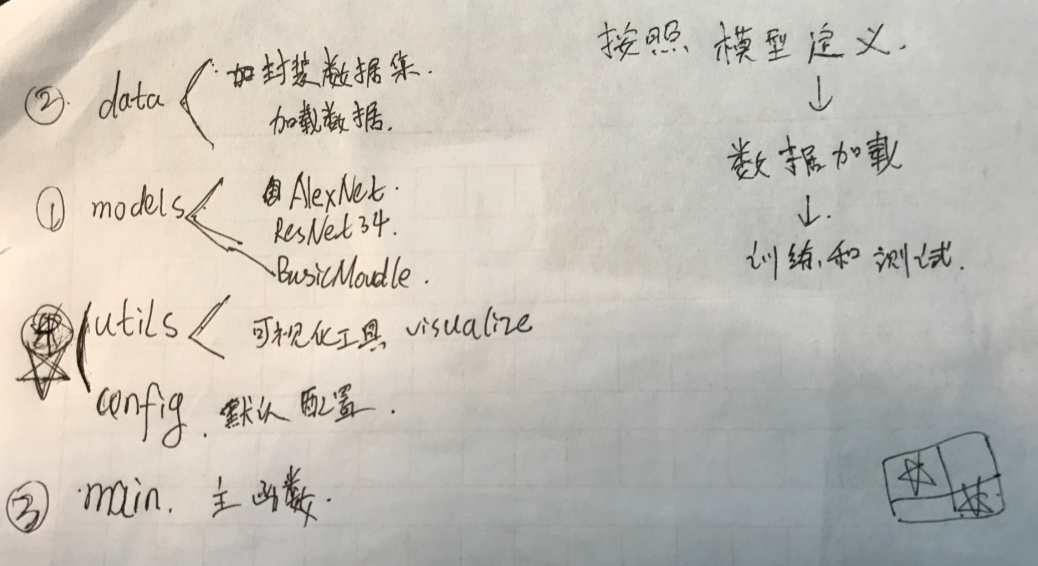 ② data 封装数据集.
加载数据.
① models AlexNet.
ResNet34.
BasicMoudle.
utils 可视化工具 visualize
config. 默认配置.
③ main. 主函数.
按照 模型定义.
↓
数据加载
↓.
训练和测试.